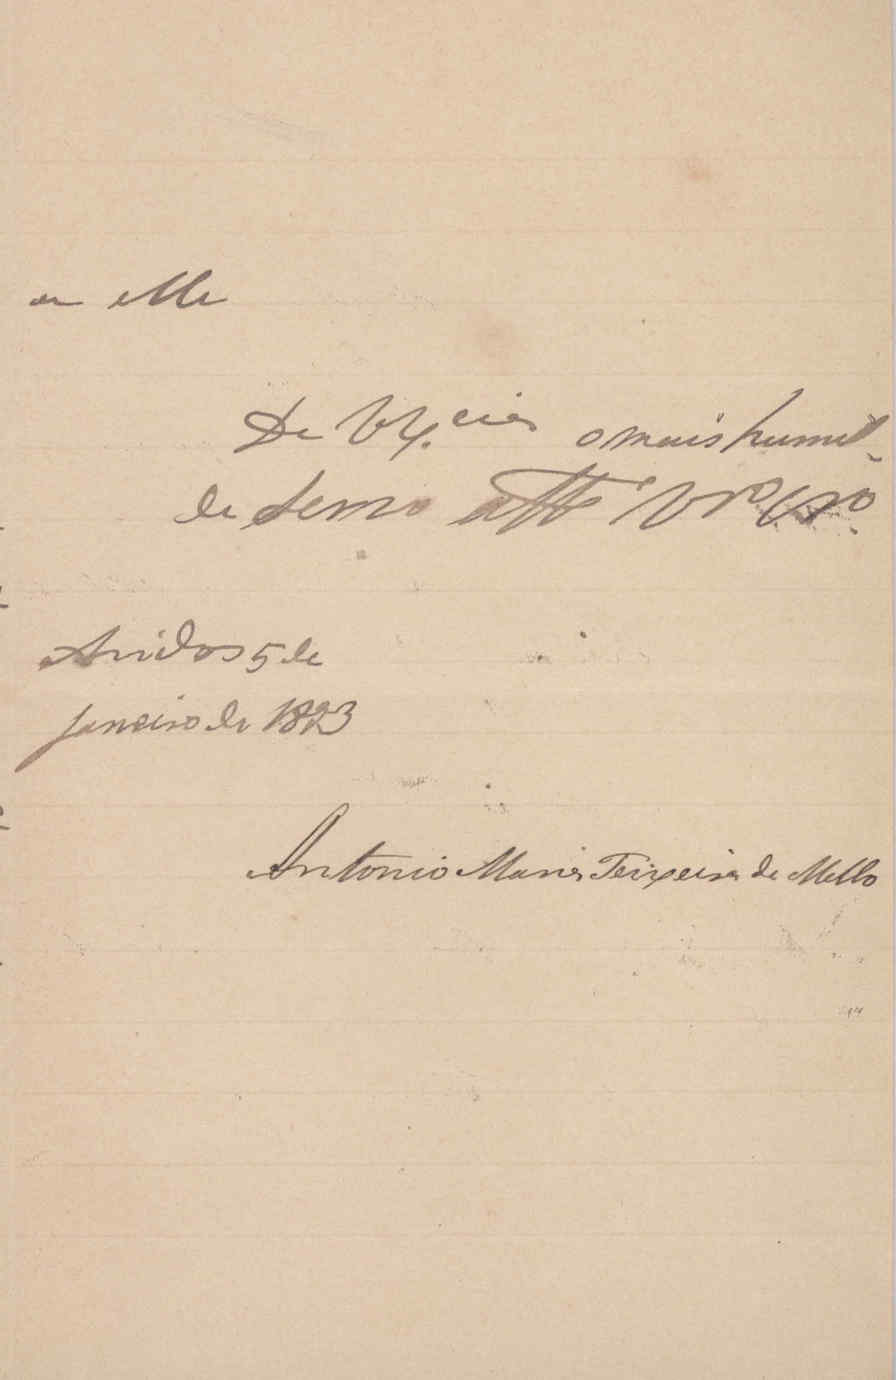 a elle
De V Ex.cia o mais humil-
de servo att.o V.or
Arridos 5 de
Janeiro de 1893
Antonio Maria Teixeira de Mello